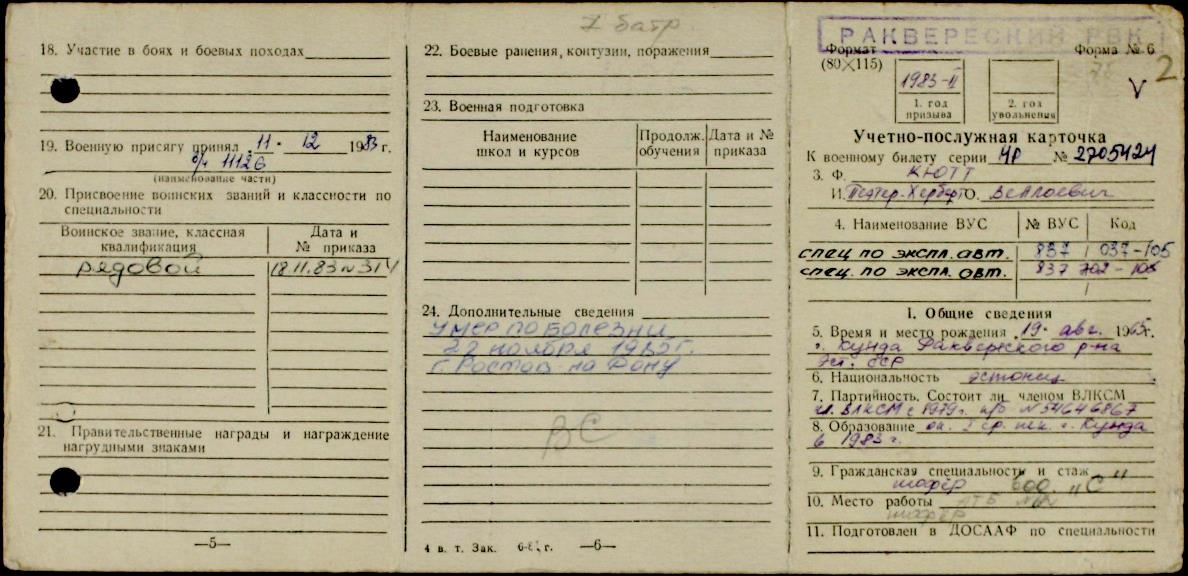 18. Участие в боях и боевых походах
19. Военную присягу принял 11. 12 1983 г.
в/ч 11126
(наименование части)
20. Присвоение воинских званий и классности по специальности
Воинское звание, классная квалификация
Дата и № приказа
рядовой 18.11.83 № 314
21. Правительственные награды и награждение нагрудными знаками
—5—
7 батр.
22. Боевые ранения, контузии, поражения
23. Военная подготовка
Наименование школ и курсов
Продолж. обучения
Дата и № приказа
24. Дополнительные сведения
умер по болезни
22 ноября 1985г.
г. Ростов-на-Дону
ВС
4 в. т. Зак. 6- г. —6—
РАКВЕРЕСКИЙ РВК
Формат (80×115)
Форма № 6
2
V
1983-II
1. год призыва
2. год увольнения
Учетно-послужная карточка
К военному билету серии НР № 2705424
3. Ф. КЮТТ
И. Пеэтер-Херберт О. Веллоевич
4. Наименование ВУС № ВУС Код
спец по экспл. авт. 837 037-105
спец. по экспл. авт. 837 702-105
I. Общие сведения
5. Время и место рождения 19. авг. 1965г.
г. Кунда Раквереского р-на
Эст. ССР
6. Национальность эстонец
7. Партийность. Состоит ли членом ВЛКСМ
чл. ВЛКСМ с 1979г. № 54646867
8. Образование ок. I ср. шк. г. Кунда
в 1983 г.
9. Гражданская специальность и стаж
шофёр вод. „С"
10. Место работы АТБ
шофёр
11. Подготовлен в ДОСААФ по специальности